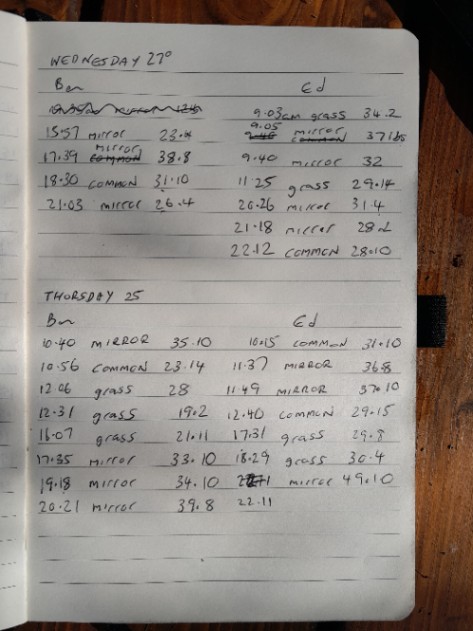 WEDNESDAY 27°
Ben
Ed
9.03am grass 34.2
15.57 mirror 23.4
9.05 mirror 37.15
17.39 mirror 38.8
9.40 mirror 32
18.30 common 31.10
11.25 grass 29.14
21.03 mirror 26.4
20.26 mirror 31.4
21.18 mirror 28.2
22.12 common 28.10
THURSDAY 25
Ben
Ed
10.40 MIRROR 35.10
10.15 common 31.10
10.56 COMMON 23.14
11.37 MIRROR 36.8
12.06 grass 28
11.49 MIRROR 37.10
12.31 grass 19.2
12.40 COMMON 29.15
16.07 grass 21.11
17.31 grass 29.8
17.35 mirror 33.10
18.29 grass 30.4
19.18 mirror 34.10
mirror 49.10
20.21 mirror 39.8
22.11